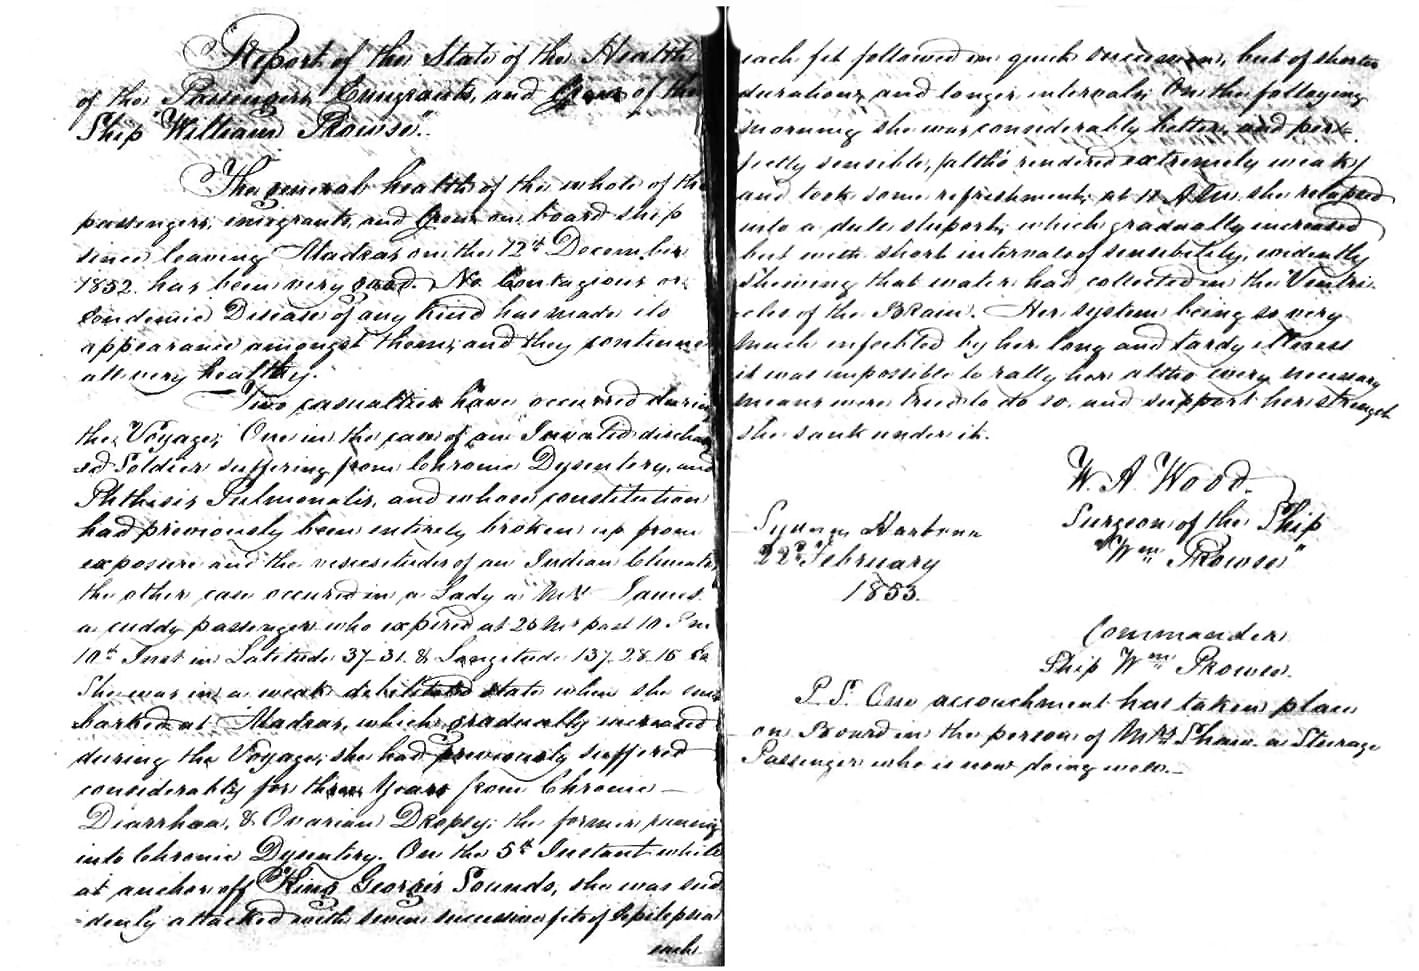 Report of the State of the Health
of the Passengers, Emigrants, and Crew of the
Ship "William Prowse".
The general health of the whole of the
passengers, imigrants, and Crew on board ship
since leaving Madras on the 12th December
1852 has been very good. No Contagious or
Endemic Disease of any kind has made its
appearance amongst them, and they continue
all very healthy.
Two casualties have occurred during
the Voyage; One in the case of an Invalid discharg
ed Soldier suffering from Chronic Dysentery, and
Phthisis Pulmonalis, and whose constitution
had previously been entirely broken up from
exposure and the vicissitudes of an Indian Climate,
the other case occured in a Lady a Mrs James
a cuddy passenger who expired at 20 Ms past 10 P m
10th Inst in Latitude 37-31 & Longitude 137-28-15 Ea
She was in a weak debilitated state when she em
barked at Madras, which gradually increased
during the Voyage; she had previously suffered
considerably for three Years from Chronic
Diarrhœa, & Ovarian Dropsy; the former runing
into Chronic Dysentery. On the 5th Instant while
at anchor off King George's Sounds, she was sud
-denly attacked with seven successive fits of Epilepsia
each
each fit followed in quick succession, but of shorter
duration, and longer intervals; On the following
morning she was considerably better, and per-
fectly sensible, (altho' rendered extremely weak)
and took some refreshment; at 11 A M. she relapsed
into a dull stupor; which gradually increased
but with short intervals of sensibility, evidently
shewing that water had collected in the Ventri-
cles of the Brain. Her system being so very
much enfeebled by her long and tardy illness
it was impossible to rally her altho every necessary
means were tried to do so, and support her strength
she sank under it.
W. A. Wood.
Surgeon of the Ship
"Wm Prowse"
Sydney Harbour
22nd February
1853.
Commander
Ship Wm Prowse.
P.S. One accouchment has taken place
on Board in the person of Mrs Shaw a Steerage
Passenger who is now doing well.